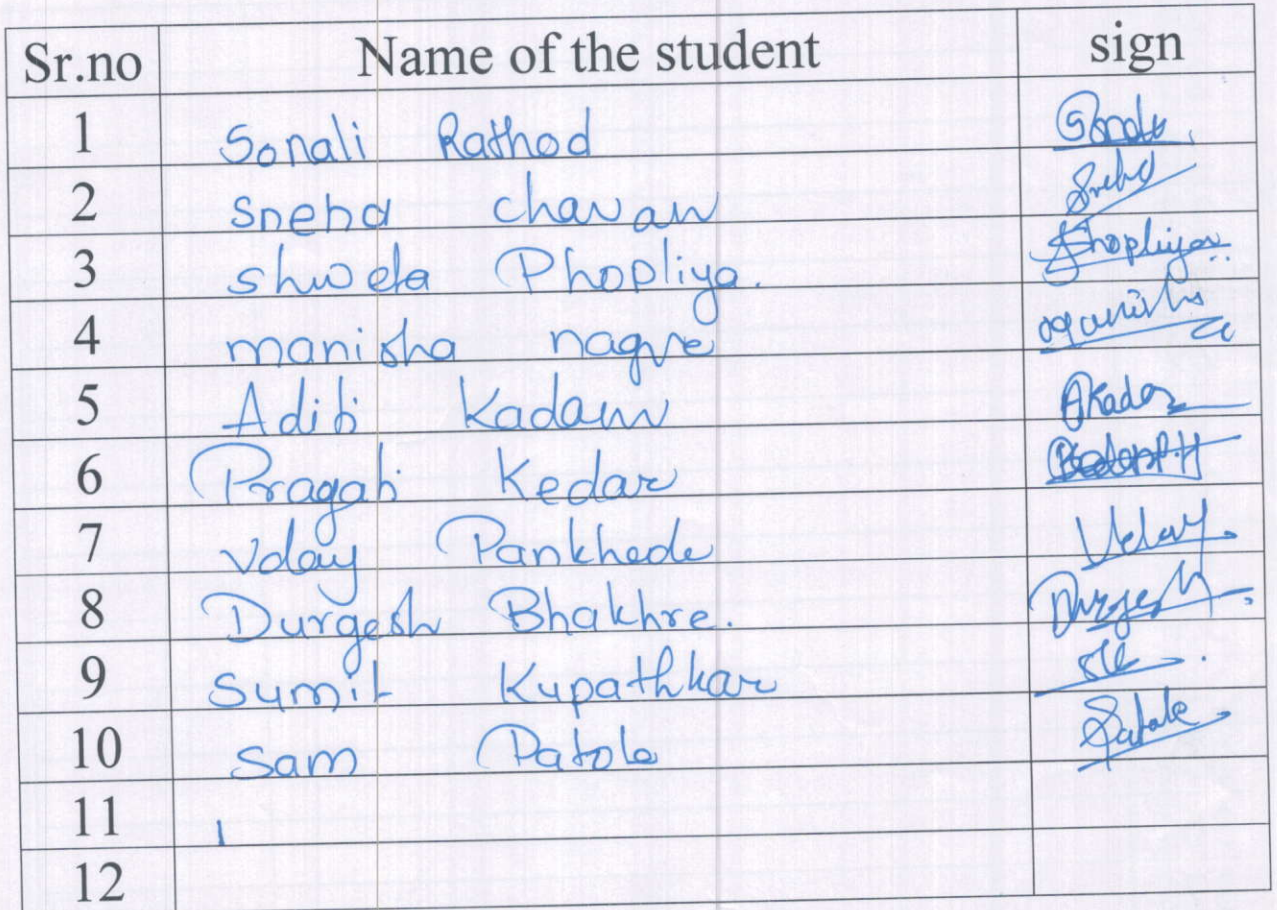 Sr.no Name of the student sign
1 Sonali Rathod
2 Sneha chavan Sneha
3 shweta Phopliya. Phopliya
4 manisha nagre manisha
5 Aditi Kadam AKadam
6 Pragati Kedar
7 Vday Pankhede Uday
8 Durgesh Bhakhre. Durgesh
9 Sumit Kupathkar
10 Sam Patole Patole
11
12